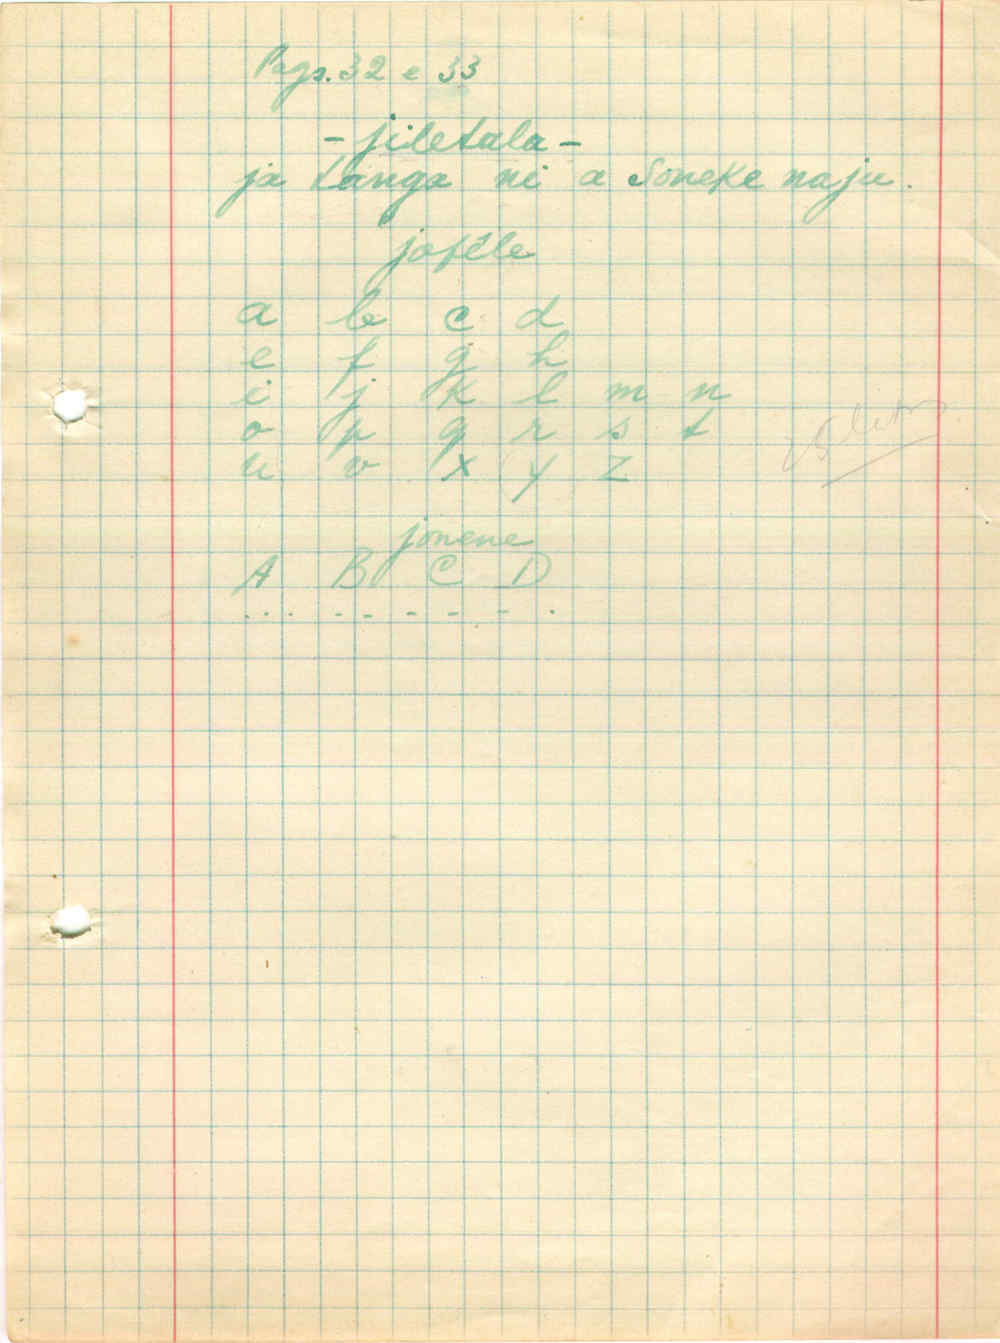 Pags. 32 e 33
- jiletala -
ja tanga ni a soneke naju.
jofele
a b c d
e f g h
i j k l m n
o p q r s t
u v x y z
jonene
A B C D
... - - - - - .